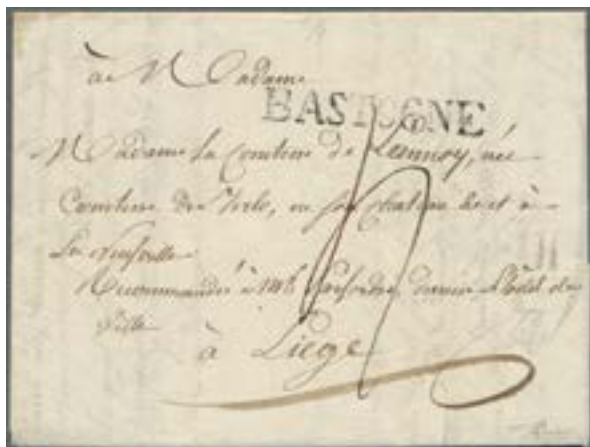 à Madame
BASTOGNE
Madame la Comtesse de Lannoy, née
Comtesse de, en son chateau et à
la neufville
Recommandée à derrière l'hôtel de
Ville
à Liege